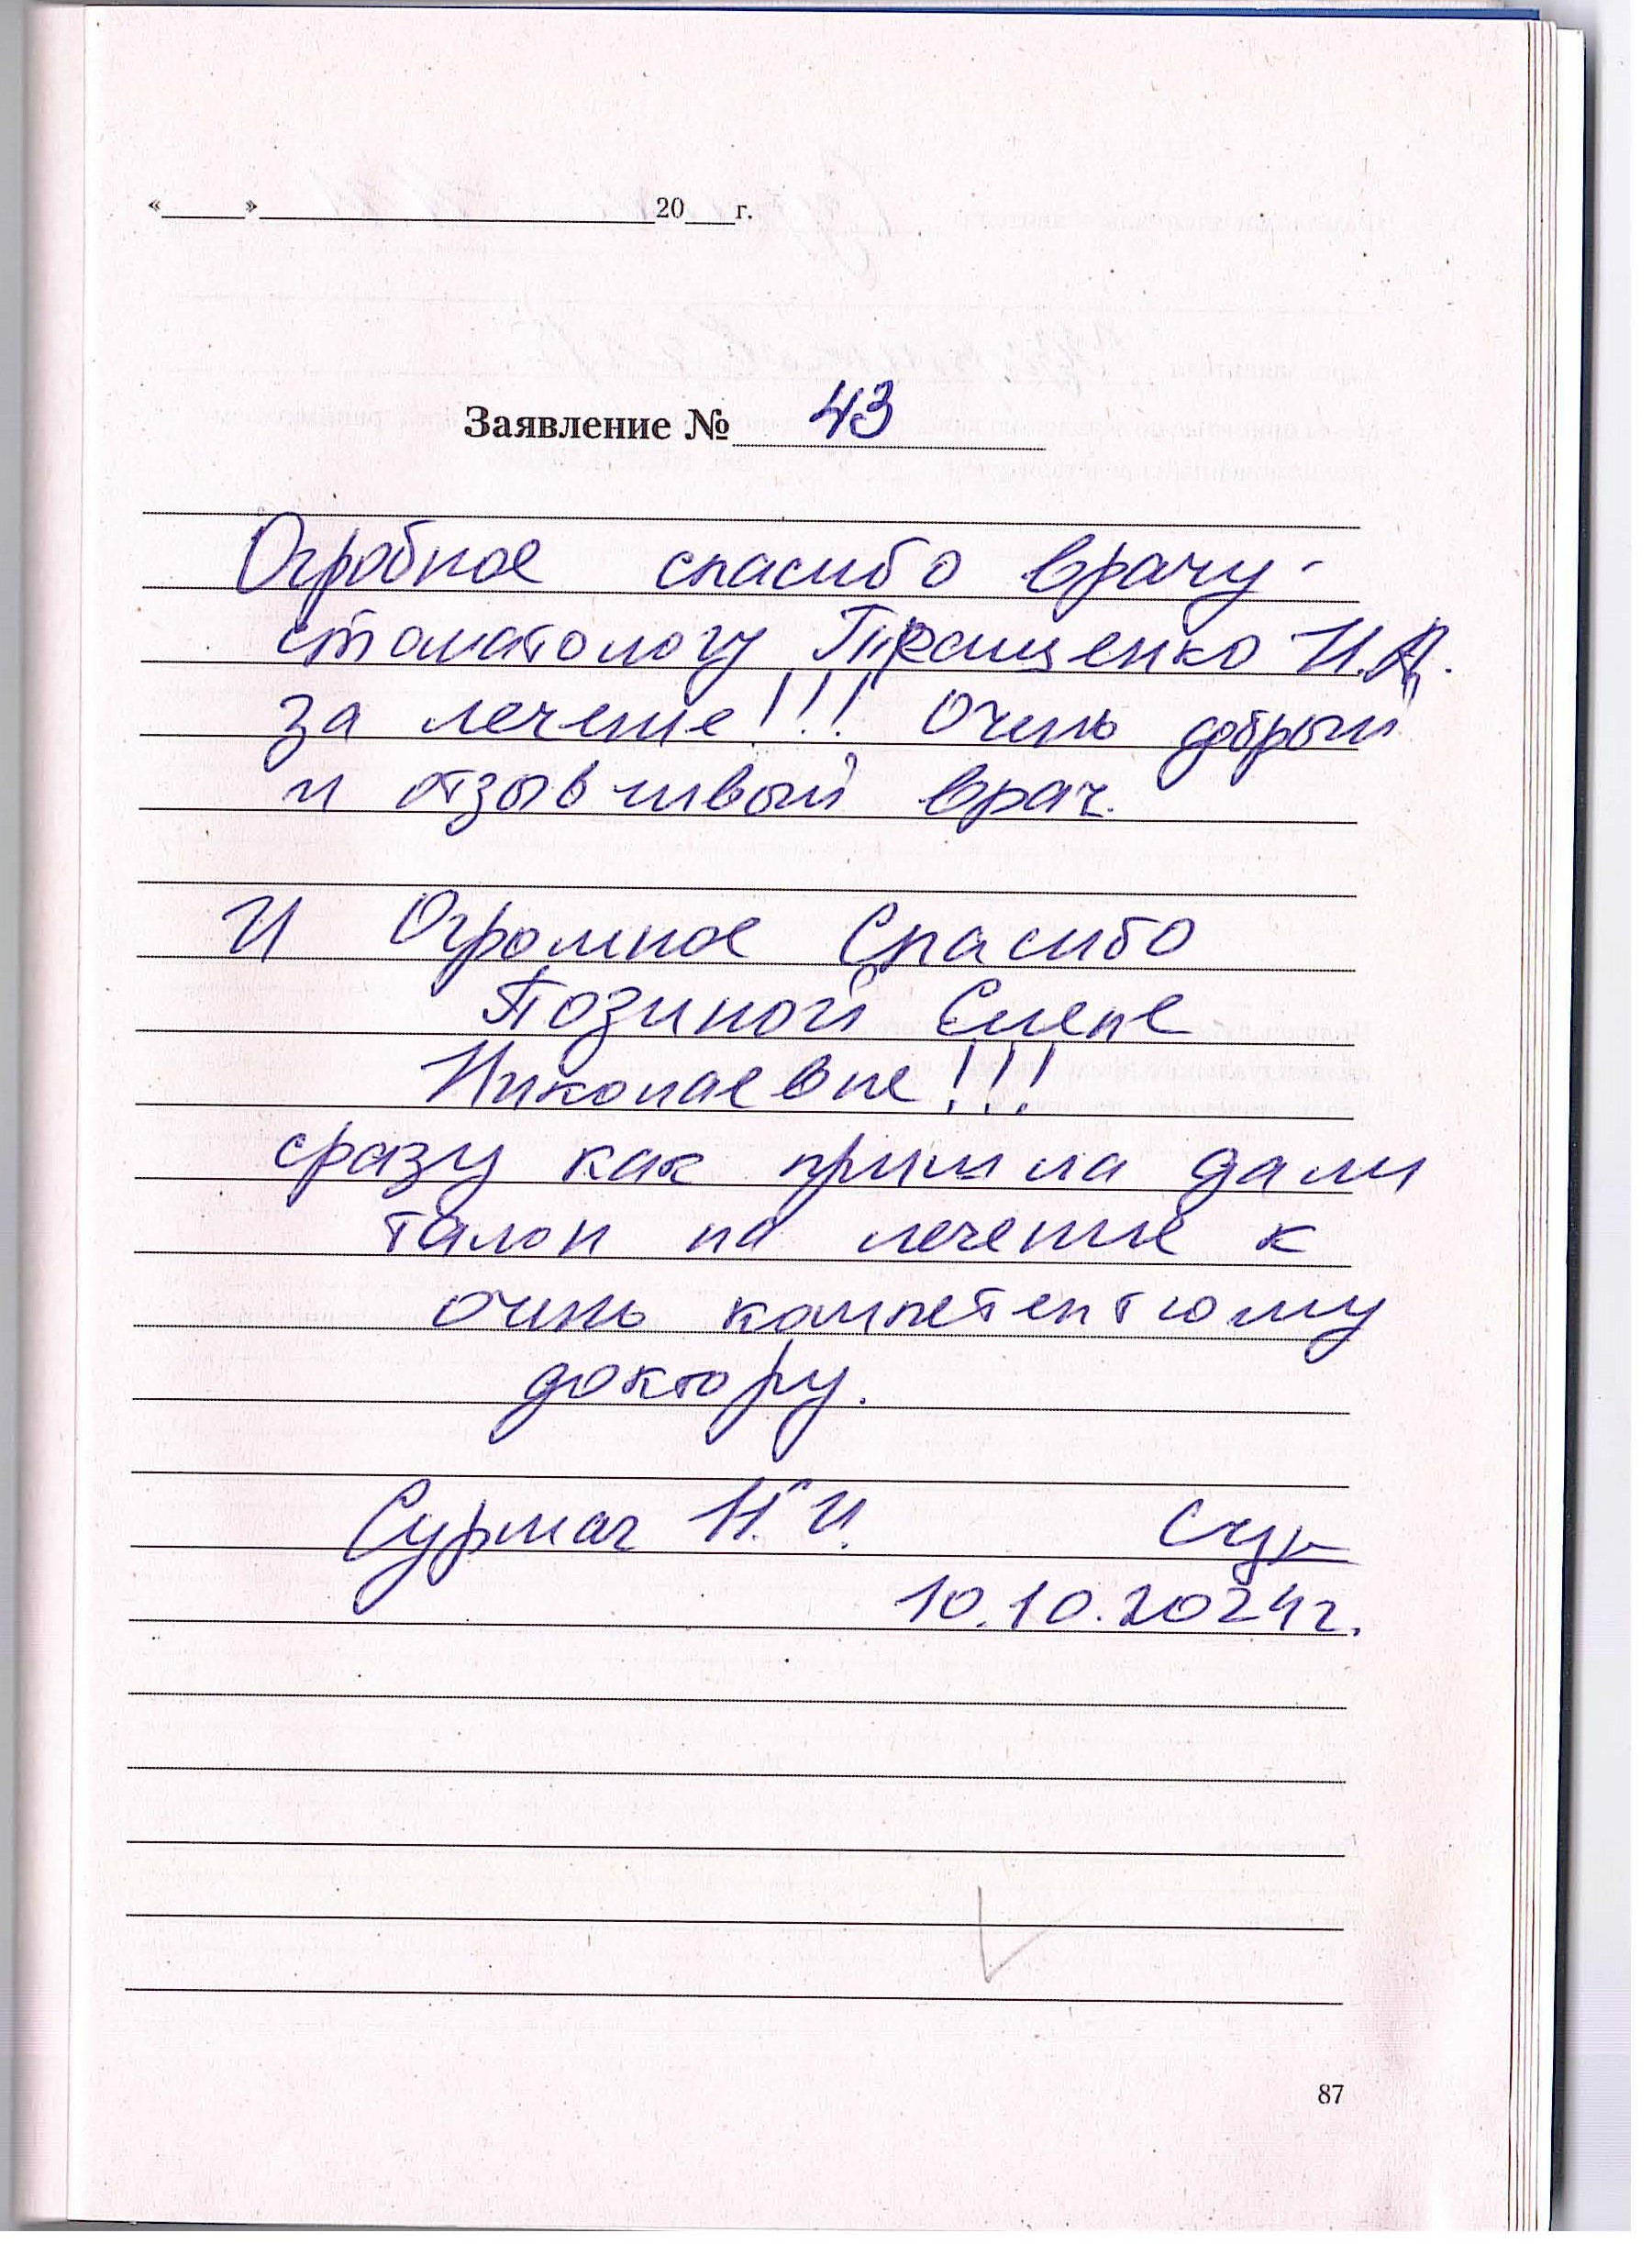 «____»____________20___г.
Заявление № 43
Огробное спасибо врачу-
стоматологу Н.А.
за лечение!!! Очень добрый
и отзывчивый врач.
И Огромное Спасибо
Позиной Елене
Николаевне!!!
сразу как пришла дали
талон на лечение к
очень компетентному
доктору.
Сурмач Н.И.
10.10.2024г.
87